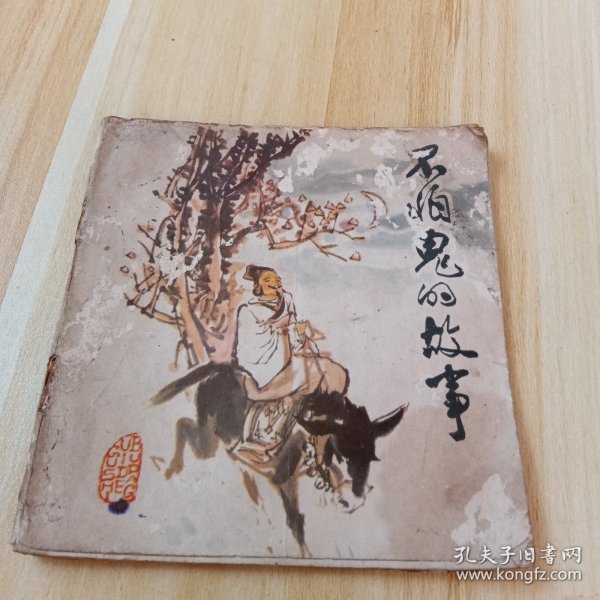 不怕鬼的故事
BUPA
GUIDE
GUSHI
孔夫子旧书网
www.kongfz.com